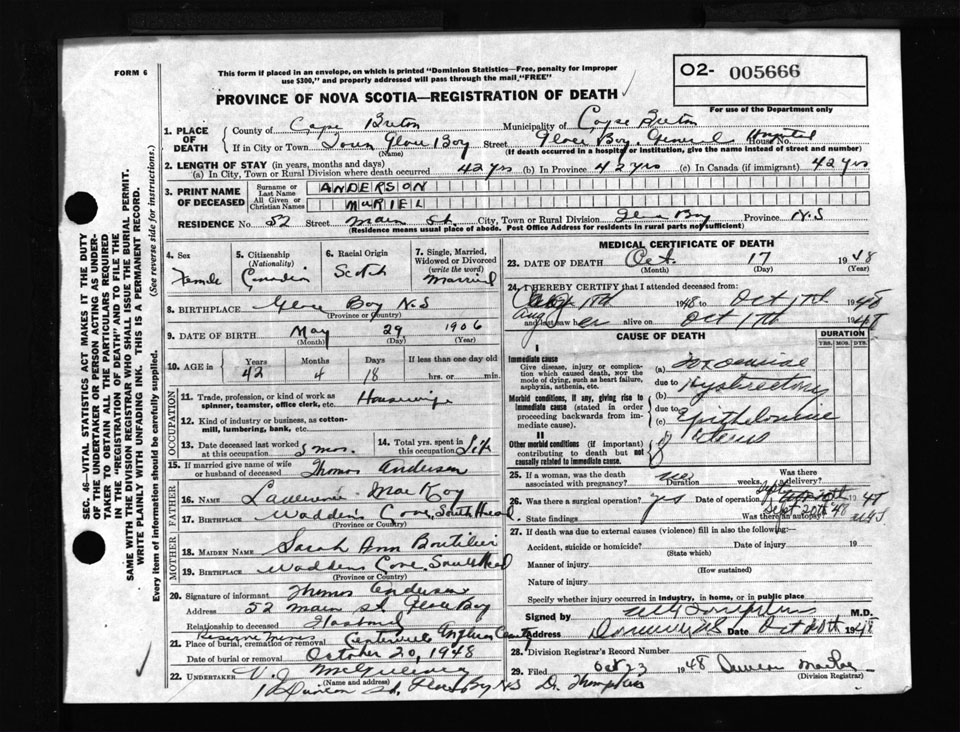 FORM 6
This form if placed in an envelope, on which is printed "Dominion Statistics—Free, penalty for improper
use $300," and properly addressed will pass through the mail "FREE"
O2- 005666
For use of the Department only
PROVINCE OF NOVA SCOTIA—REGISTRATION OF DEATH
SEC. 46—VITAL STATISTICS ACT MAKES IT THE DUTY
OF THE UNDERTAKER OR PERSON ACTING AS UNDER-
TAKER TO OBTAIN ALL THE PARTICULARS REQUIRED
IN THE "REGISTRATION OF DEATH" AND TO FILE THE
SAME WITH THE DIVISION REGISTRAR WHO SHALL ISSUE THE BURIAL PERMIT.
WRITE PLAINLY WITH UNFADING INK. THIS IS A PERMANENT RECORD.
Every item of information should be carefully supplied. (See reverse side for instructions.)
1. PLACE OF DEATH
County of Cape Breton Municipality of Cape Breton
If in City or Town Town Glace Bay Street Glace Bay General Hospital House No.
(Name) (If death occurred in a hospital or institution, give the name instead of street and number)
2. LENGTH OF STAY (in years, months and days)
(a) In City, Town or Rural Division where death occurred 42 yrs (b) In Province 42 yrs (c) In Canada (if immigrant) 42 yrs
3. PRINT NAME OF DECEASED
Surname or Last Name ANDERSON
All Given or Christian Names MURIEL
RESIDENCE No. 52 Street Main St City, Town or Rural Division Glace Bay Province N.S
(Residence means usual place of abode. Post Office Address for residents in rural parts not sufficient)
4. Sex 5. Citizenship (Nationality) 6. Racial Origin 7. Single, Married, Widowed or Divorced (write the word)
Female Canadian Scotch Married
8. BIRTHPLACE Glace Bay N.S
(Province or Country)
9. DATE OF BIRTH May 29 1906
(Month) (Day) (Year)
10. AGE in Years Months Days If less than one day old
42 4 18 hrs. or min.
OCCUPATION
11. Trade, profession, or kind of work as
spinner, teamster, office clerk, etc. Housewife
12. Kind of industry or business, as cotton-
mill, lumbering, bank, etc.
13. Date deceased last worked at this occupation 3 mos. 14. Total yrs. spent in this occupation Life
15. If married give name of wife
or husband of deceased Thomas Anderson
FATHER
16. NAME Lawrence MacKay
17. BIRTHPLACE Waddens Cove, South Head
(Province or Country)
MOTHER
18. MAIDEN NAME Sarah Ann Boutilier
19. BIRTHPLACE Waddens Cove, South Head
(Province or Country)
20. Signature of informant Thomas Anderson
Address 52 Main St. Glace Bay
Relationship to deceased Husband
Reserve Mines Centerville Anglican
21. Place of burial, cremation or removal
Date of burial or removal October 20, 1948
22. UNDERTAKER V. J. McGillivray
(Name and address)
St, Glace Bay N.S D. Thompkins
MEDICAL CERTIFICATE OF DEATH
23. DATE OF DEATH Oct. 17 1948
(Month) (Day) (Year)
24. I HEREBY CERTIFY that I attended deceased from:
Aug 1948 to Oct 17th 1948
and last saw her alive on Oct 17th 1948
CAUSE OF DEATH DURATION
YRS. MOS. DYS.
I
Immediate cause
Give disease, injury or complica-
tion which caused death, nor the
mode of dying, such as heart failure,
asphyxia, asthenia, etc.
(a) Toxemia
due to
(b) Hysterectomy
Morbid conditions, if any, giving rise to
immediate cause (stated in order
proceeding backwards from im-
mediate cause).
due to
(c) Epithelioma
of Uterus
II
Other morbid conditions (if important)
contributing to death but not
causally related to immediate cause.
25. If a woman, was the death
associated with pregnancy? No Duration weeks. Was there delivery?
26. Was there a surgical operation? yes Date of operation Sept 20th 48
State findings Was there an autopsy?
27. If death was due to external causes (violence) fill in also the following:—
Accident, suicide or homicide? Date of injury 19
(State which)
Manner of injury
(How sustained)
Nature of injury
Specify whether injury occurred in industry, in home, or in public place
Signed by M.D.
Address Dominion N.S Date Oct 20th 1948
28. Division Registrar's Record Number
29. Filed Oct 23 1948 Duncan
(Division Registrar)